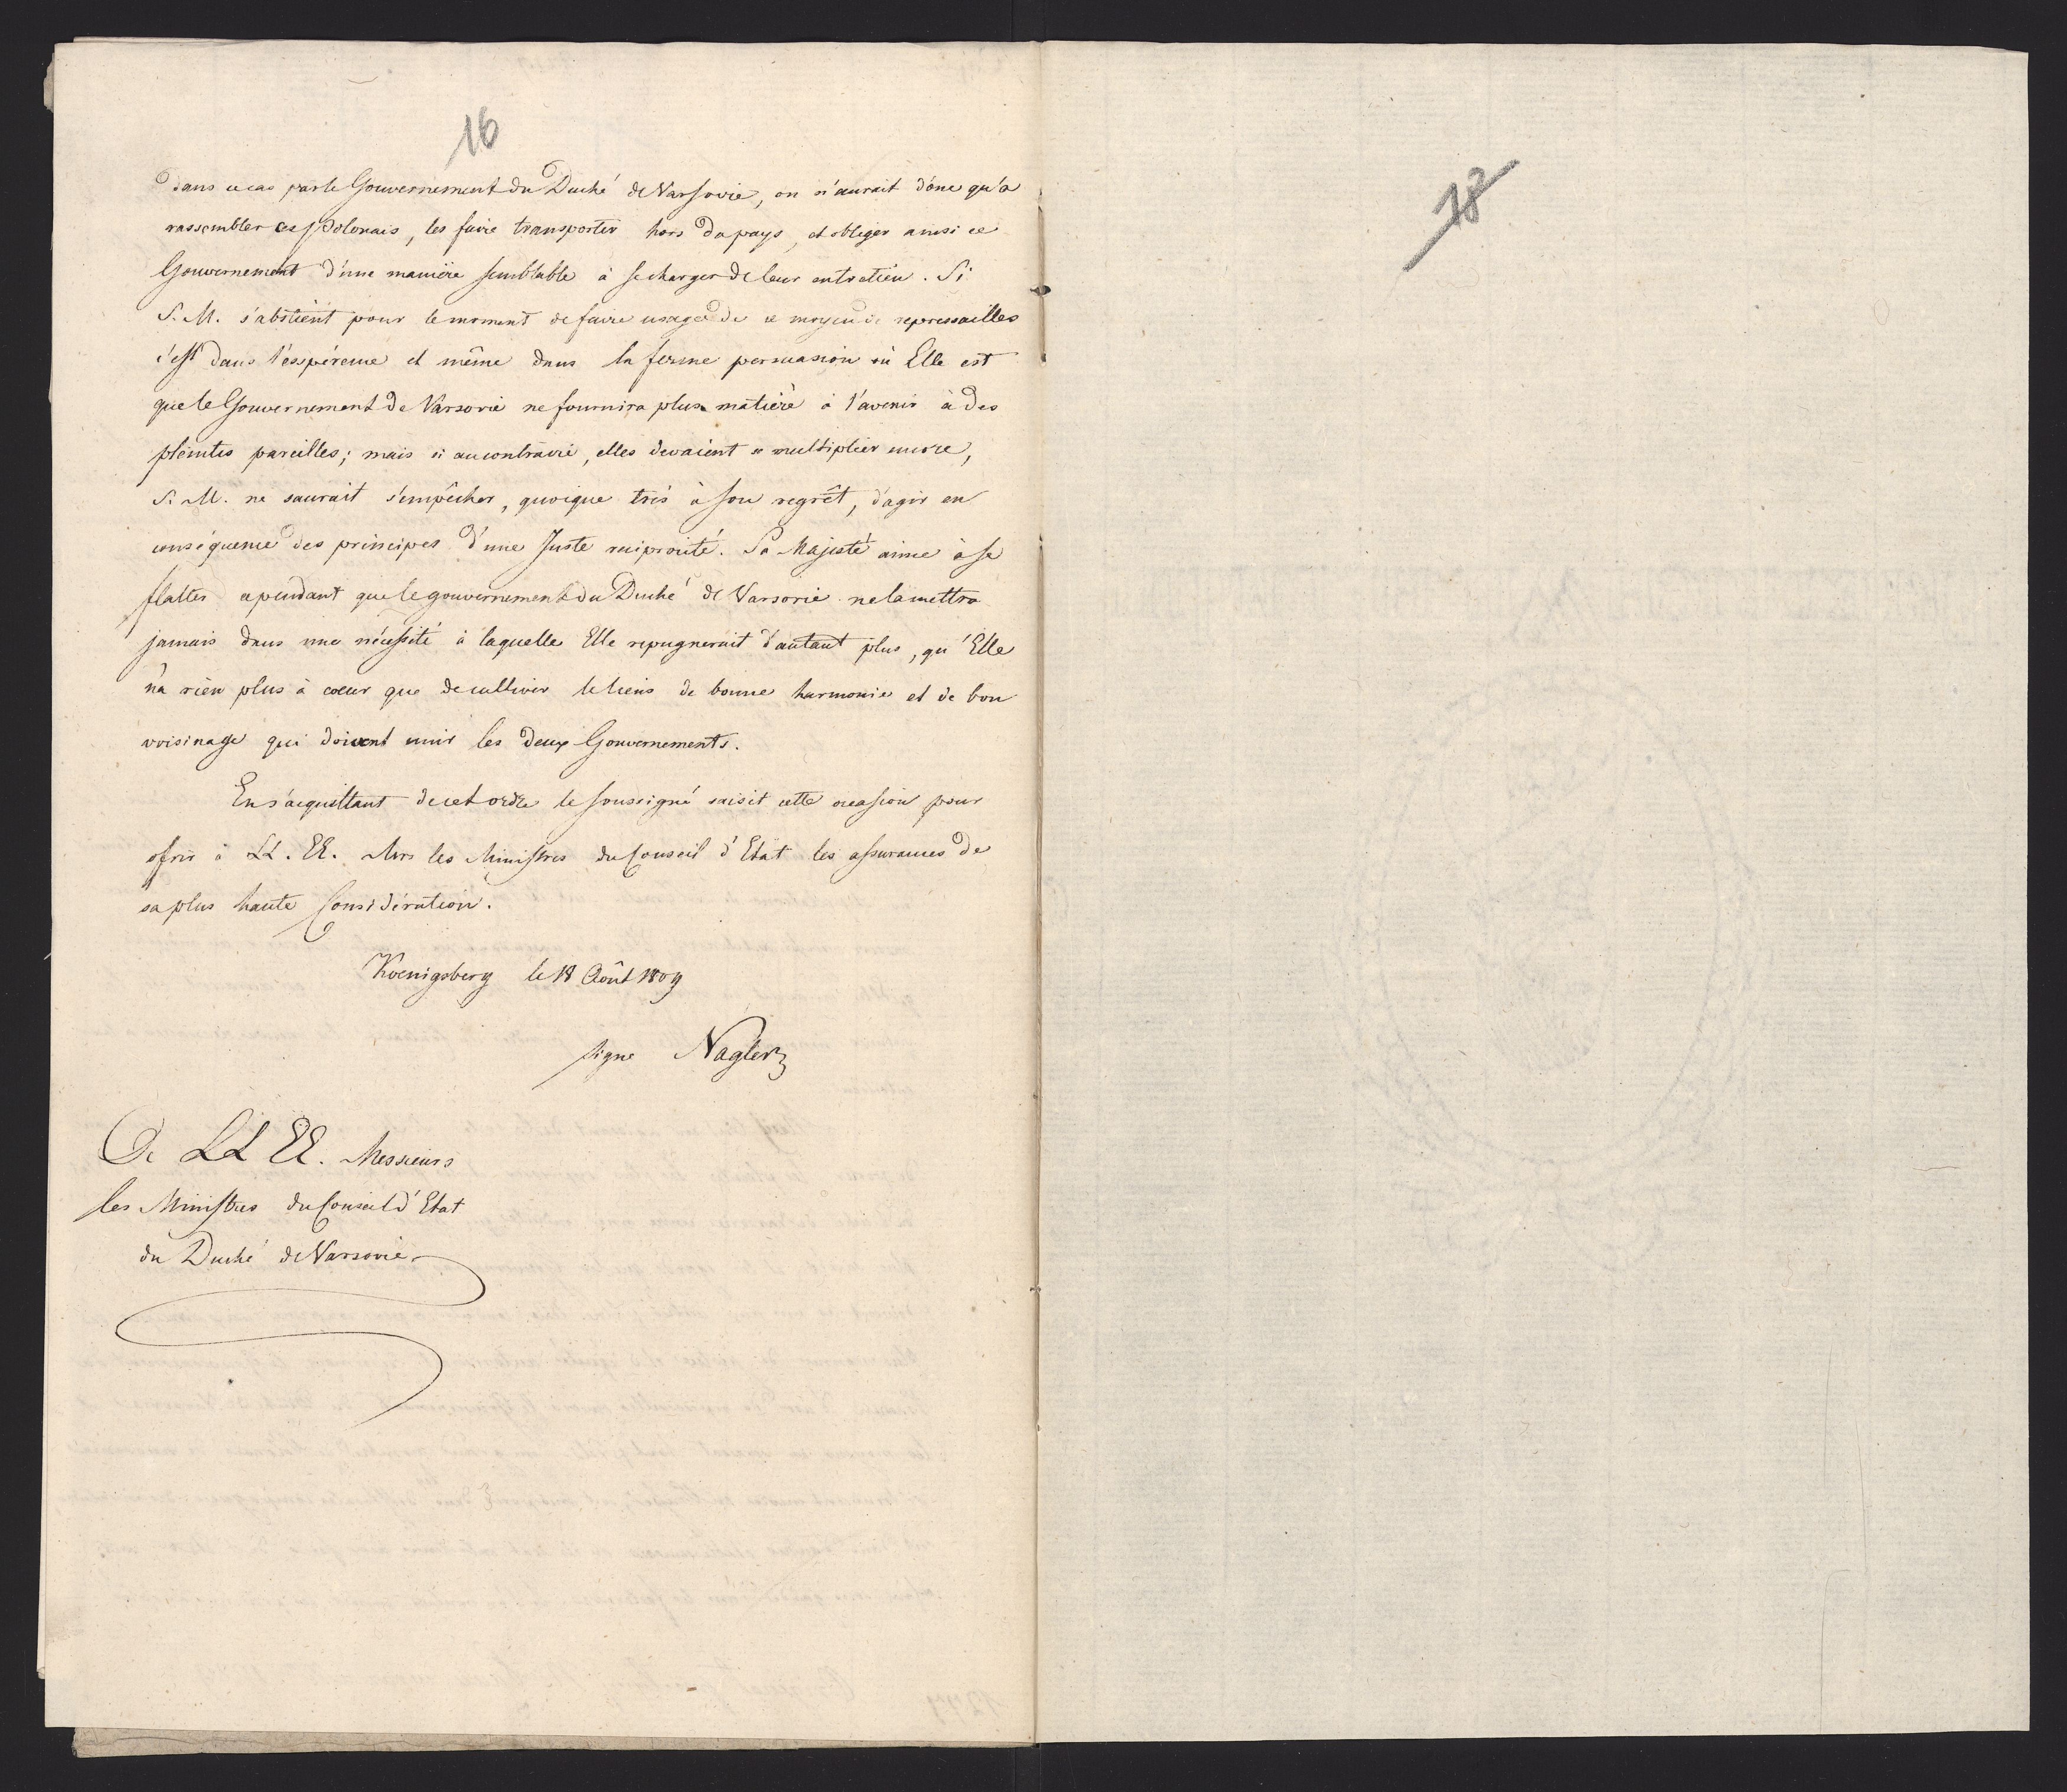 16
dans ce cas par le Gouvernement du Duché de Varsovie, on n'aurait donc qu'a
rassembler ces Polonais, les faire transporter hors du pays, et obliger ainsi ce
Gouvernement d'une manière semblable à se charger de leur entretien. Si
S. M. s'abstient pour le moment de faire usage de ce moyen de repressailles
c'est dans l'espérence et même dans la ferme persuasion où Elle est
que le Gouvernement de Varsovie ne fournira plus matière à l'avenir à des
pleintes pareilles; mais si au contraire, elles devaient se multiplier encore,
S. M. ne saurait s'empêcher, quoique très à son regrêt, d'agir en
conséquence des principes d'une Juste reciprocité. Sa Majesté aime à se
flatter cependant que le gouvernement du Duché de Varsovie ne la mettra
jamais dans une nécessité à laquelle Elle repugnerait d'autant plus, qu'Elle
n'a rien plus à coeur que de cultiver le liens de bonne harmonie et de bon
voisinage qui doivent unir les deux Gouvernements.
En s'acquittant de cet ordre le soussigné saisit cette occasion pour
ofrir à LL. EE. Mrs les Ministres du Conseil d'Etat les assurances de
sa plus haute Considération.
Koenigsberg le 18 Août 1809
signe Nagler
A LL EE. Messieurs
les Ministres du Conseil d'Etat
du Duché de Varsovie
78